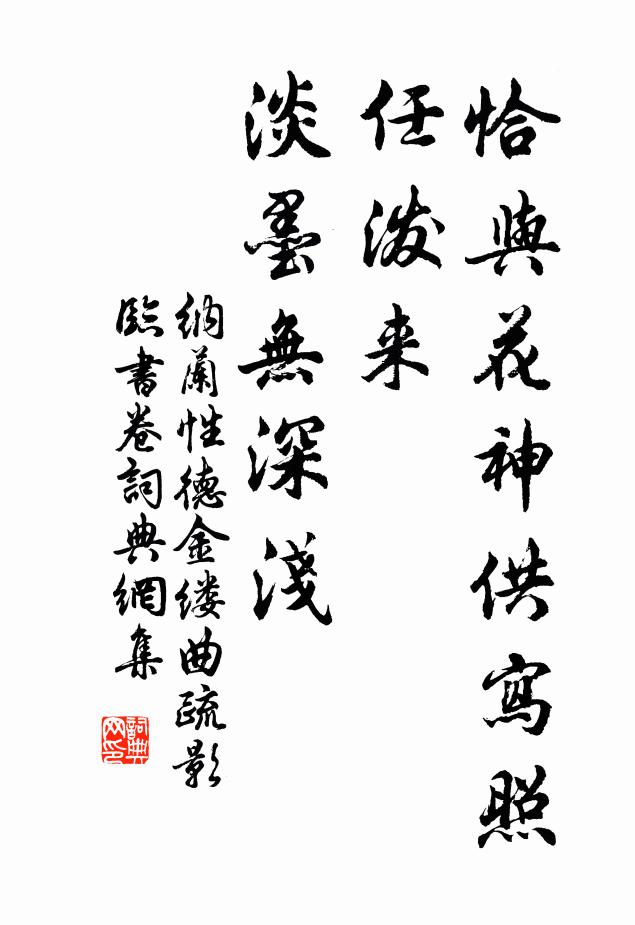 恰與花神供寫照
任潑来
淡墨無深淺
納蘭性德金缕曲疏影
臨書卷詞典網集
詞典
网印